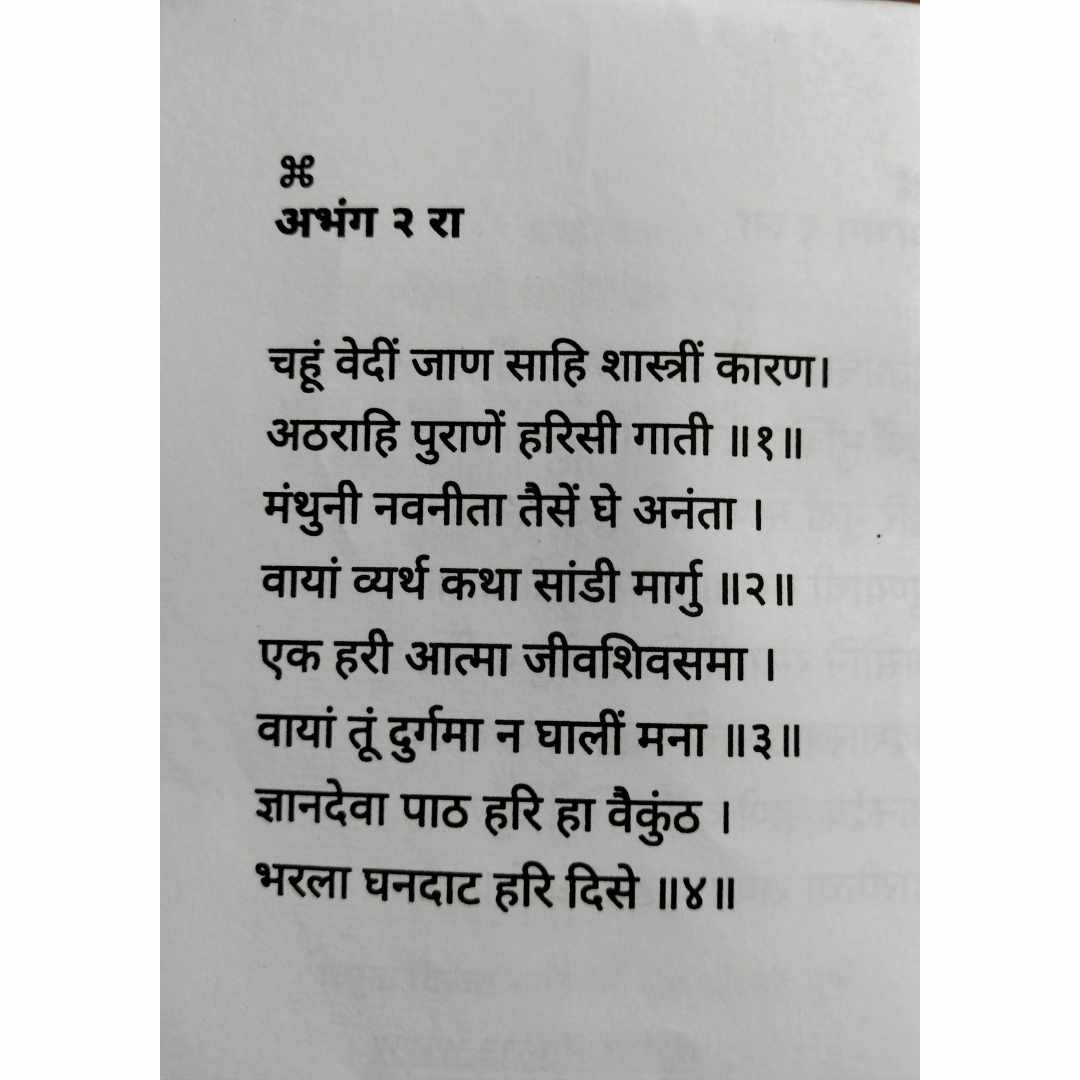 ⌘
अभंग २ रा
चहूं वेदीं जाण साहि शास्त्रीं कारण।
अठराहि पुराणें हरिसी गाती ॥१॥
मंथुनी नवनीता तैसें घे अनंता ।
वायां व्यर्थ कथा सांडी मार्गु ॥२॥
एक हरी आत्मा जीवशिवसमा ।
वायां तूं दुर्गमा न घालीं मना ॥३॥
ज्ञानदेवा पाठ हरि हा वैकुंठ ।
भरला घनदाट हरि दिसे ॥४॥